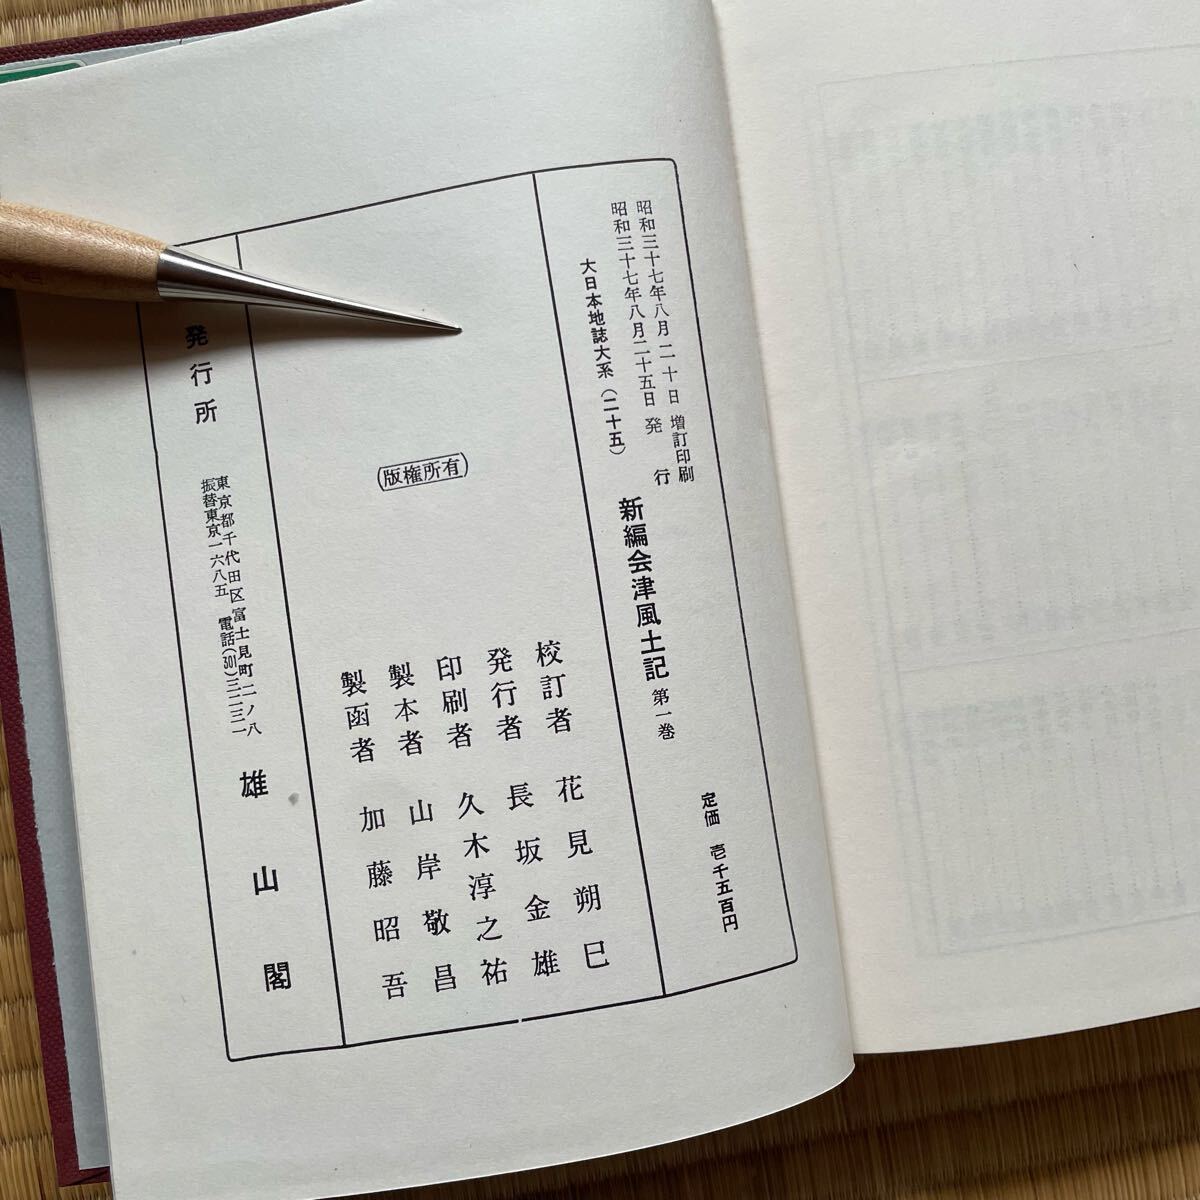 昭和三十七年八月二十日 増訂印刷
昭和三十七年八月二十五日 発行
大日本地誌大系(二十五)
新編会津風土記 第一巻
定価 壱千五百円
版権所有
校訂者 花見朔巳
発行者 長坂金雄
印刷者 久木淳之祐
製本者 山岸敬昌
製函者 加藤昭吾
発行所
東京都千代田区富士見町二ノ八
振替東京一六八五 電話(301)三二三一
雄山閣